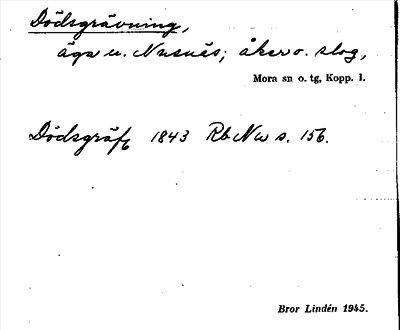 Dödsgrävning,
äga u. Nusnäs; åker o. slog,
Mora sn o. tg, Kopp. l.
Dödsgräf 1843 Rb Nw s. 156.
Bror Lindén 1945.